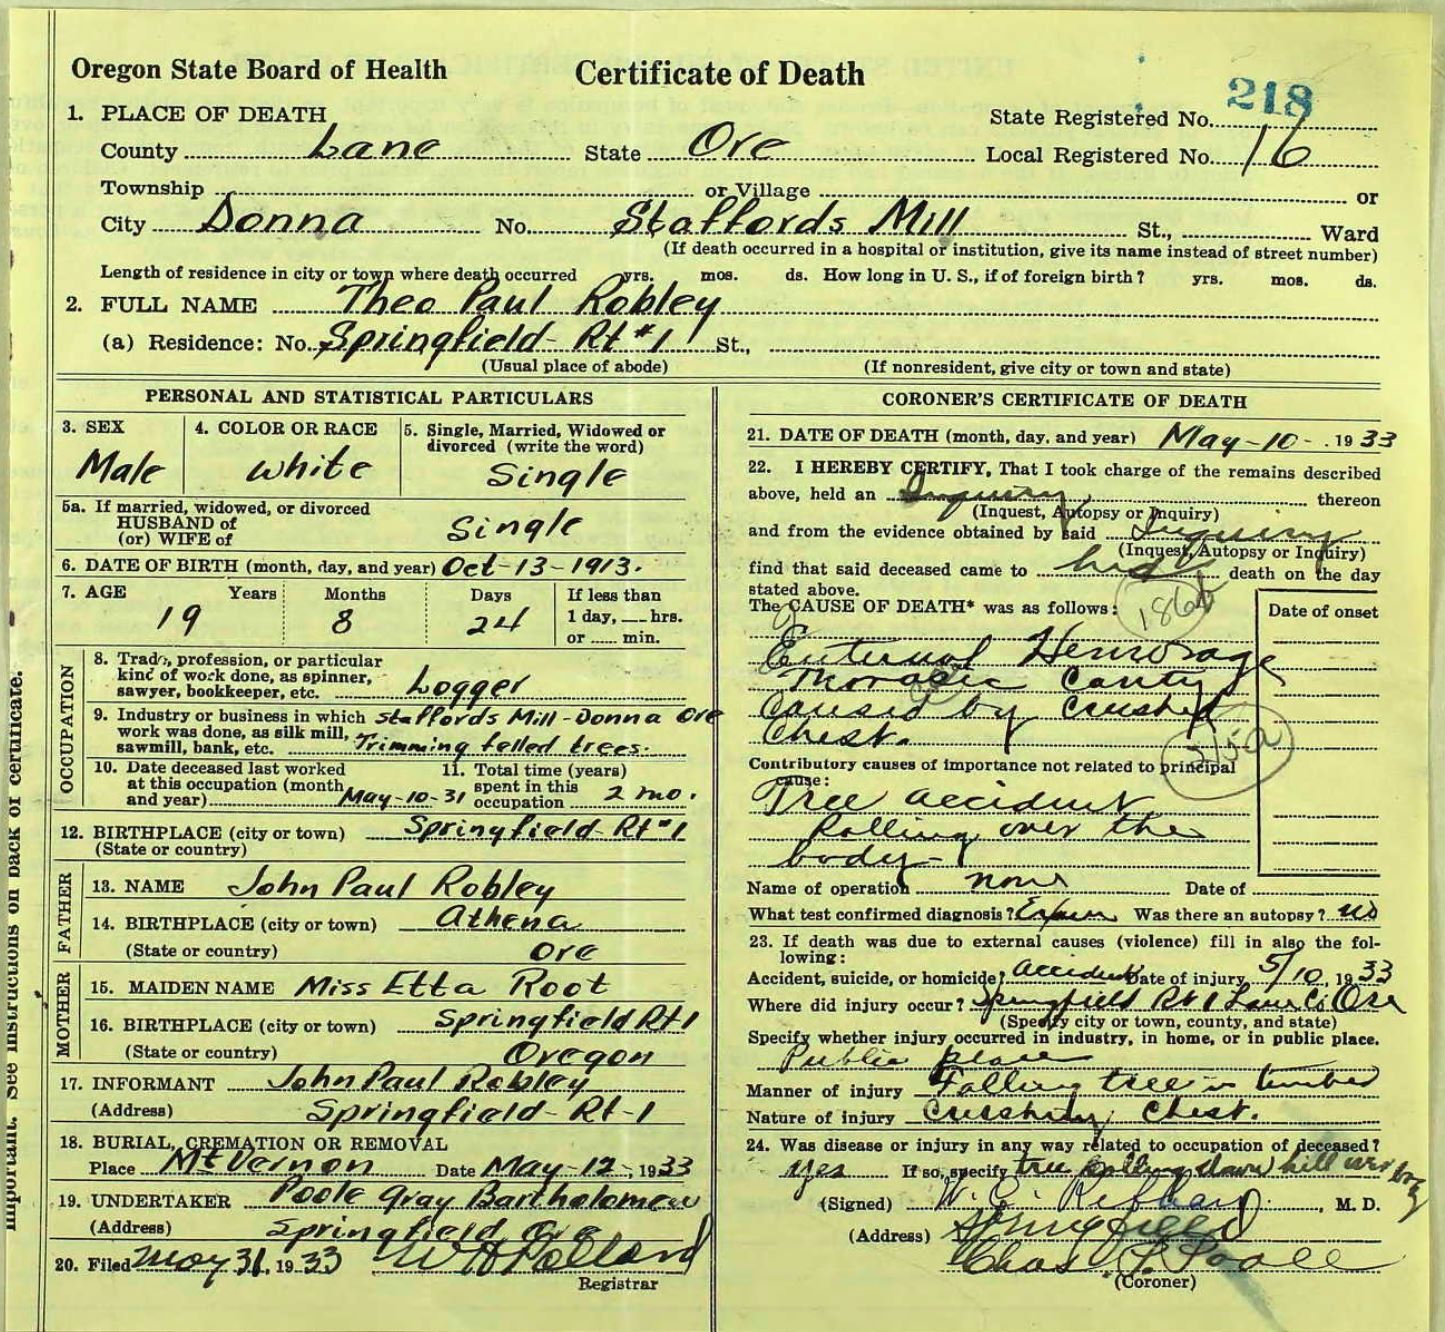 Oregon State Board of Health Certificate of Death
218
1. PLACE OF DEATH State Registered No.
County Lane State Ore Local Registered No. 16
Township or Village or
City Donna No. Staffords Mill St., Ward
(If death occurred in a hospital or institution, give its name instead of street number)
Length of residence in city or town where death occurred yrs. mos. ds. How long in U. S., if of foreign birth? yrs. mos. ds.
2. FULL NAME Theo Paul Robley
(a) Residence: No. Springfield- Rt #1 St.,
(Usual place of abode) (If nonresident, give city or town and state)
PERSONAL AND STATISTICAL PARTICULARS
3. SEX 4. COLOR OR RACE 5. Single, Married, Widowed or
divorced (write the word)
Male White Single
5a. If married, widowed, or divorced
HUSBAND of
(or) WIFE of Single
6. DATE OF BIRTH (month, day, and year) Oct-13-1913.
7. AGE Years Months Days If less than
19 8 24 1 day, hrs.
or min.
OCCUPATION
8. Trade, profession, or particular
kind of work done, as spinner,
sawyer, bookkeeper, etc. Logger
9. Industry or business in which Staffords Mill-Donna Ore
work was done, as silk mill,
sawmill, bank, etc. Trimming felled trees.
10. Date deceased last worked 11. Total time (years)
at this occupation (month spent in this
and year) May-10-31 occupation 2 mo.
12. BIRTHPLACE (city or town) Springfield-Rt#1
(State or country)
FATHER
13. NAME John Paul Robley
14. BIRTHPLACE (city or town) Athena
(State or country) Ore
MOTHER
15. MAIDEN NAME Miss Etta Root
16. BIRTHPLACE (city or town) Springfield Rt1
(State or country) Oregon
17. INFORMANT John Paul Robley
(Address) Springfield-Rt-1
18. BURIAL, CREMATION OR REMOVAL
Place Mt Vernon Date May-12-, 1933
19. UNDERTAKER Poole Gray Bartholomew
(Address) Springfield Ore
20. Filed May 31, 1933 W H Pollard
Registrar
CORONER'S CERTIFICATE OF DEATH
21. DATE OF DEATH (month, day, and year) May-10-. 1933
22. I HEREBY CERTIFY, That I took charge of the remains described
above, held an Inquiry thereon
(Inquest, Autopsy or Inquiry)
and from the evidence obtained by said Inquiry
(Inquest, Autopsy or Inquiry)
find that said deceased came to his death on the day
stated above.
The CAUSE OF DEATH* was as follows: Date of onset
Hemorage
Thoracic Cavity
Caused by Crushed
Chest.
Contributory causes of importance not related to principal
cause:
Tree accident
Rolling over the
body-
Name of operation none Date of
What test confirmed diagnosis? Exam Was there an autopsy? no
23. If death was due to external causes (violence) fill in also the fol-
lowing:
Accident, suicide, or homicide? accident Date of injury 5/10, 1933
Where did injury occur? Springfield Rt 1 Lane Co Ore
(Specify city or town, county, and state)
Specify whether injury occurred in industry, in home, or in public place.
Public place
Manner of injury Falling tree in timber
Nature of injury Crushing Chest.
24. Was disease or injury in any way related to occupation of deceased?
yes If so, specify tree rolling down hill over body
(Signed) W. C. , M. D.
(Address) Springfield
Chas. P. Poole
(Coroner)
important. See instructions on back of certificate.